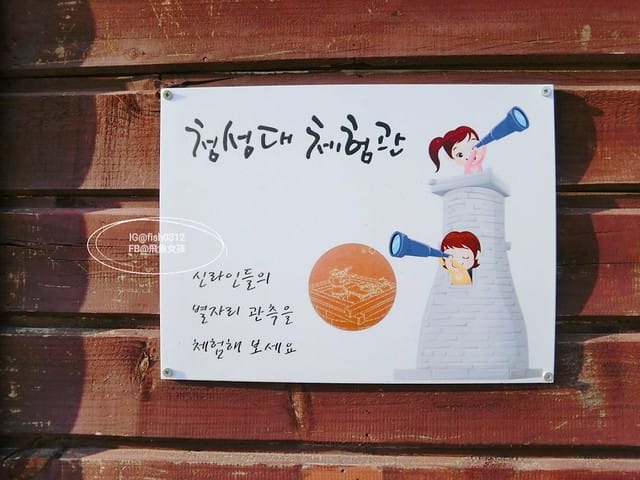 첨성대 체험관
IG@fish0312
FB@飛魚女孩
신라인들의
별자리 관측을
체험해 보세요